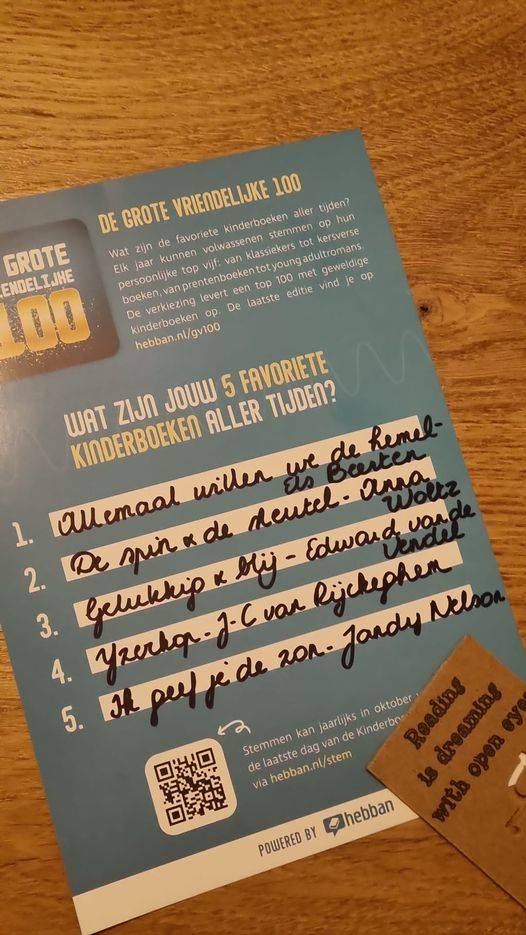 DE GROTE VRIENDELIJKE 100
GROTE
ENDELIJKE
100
Wat zijn de favoriete kinderboeken aller tijden?
Elk jaar kunnen volwassenen stemmen op hun
persoonlijke top vijf: van klassiekers tot kersverse
boeken, van prentenboeken tot young adultromans.
De verkiezing levert een top 100 met geweldige
kinderboeken op. De laatste editie vind je op
hebban.nl/gv100
WAT ZIJN JOUW 5 FAVORIETE
KINDERBOEKEN ALLER TIJDEN?
1. Allemaal willen we de hemel-
Els Beerten
2. De spin & de sleutel - Anna
Woltz
3. Gelukkig & blij - Edward van de
Vendel
4. IJzerkop - J-C van Rijckeghem
5. Ik geef je de zon - Jandy Nelson
Stemmen kan jaarlijks in oktober
de laatste dag van de
via hebban.nl/stem
POWERED BY hebban
Reading
is dreaming
with open eye